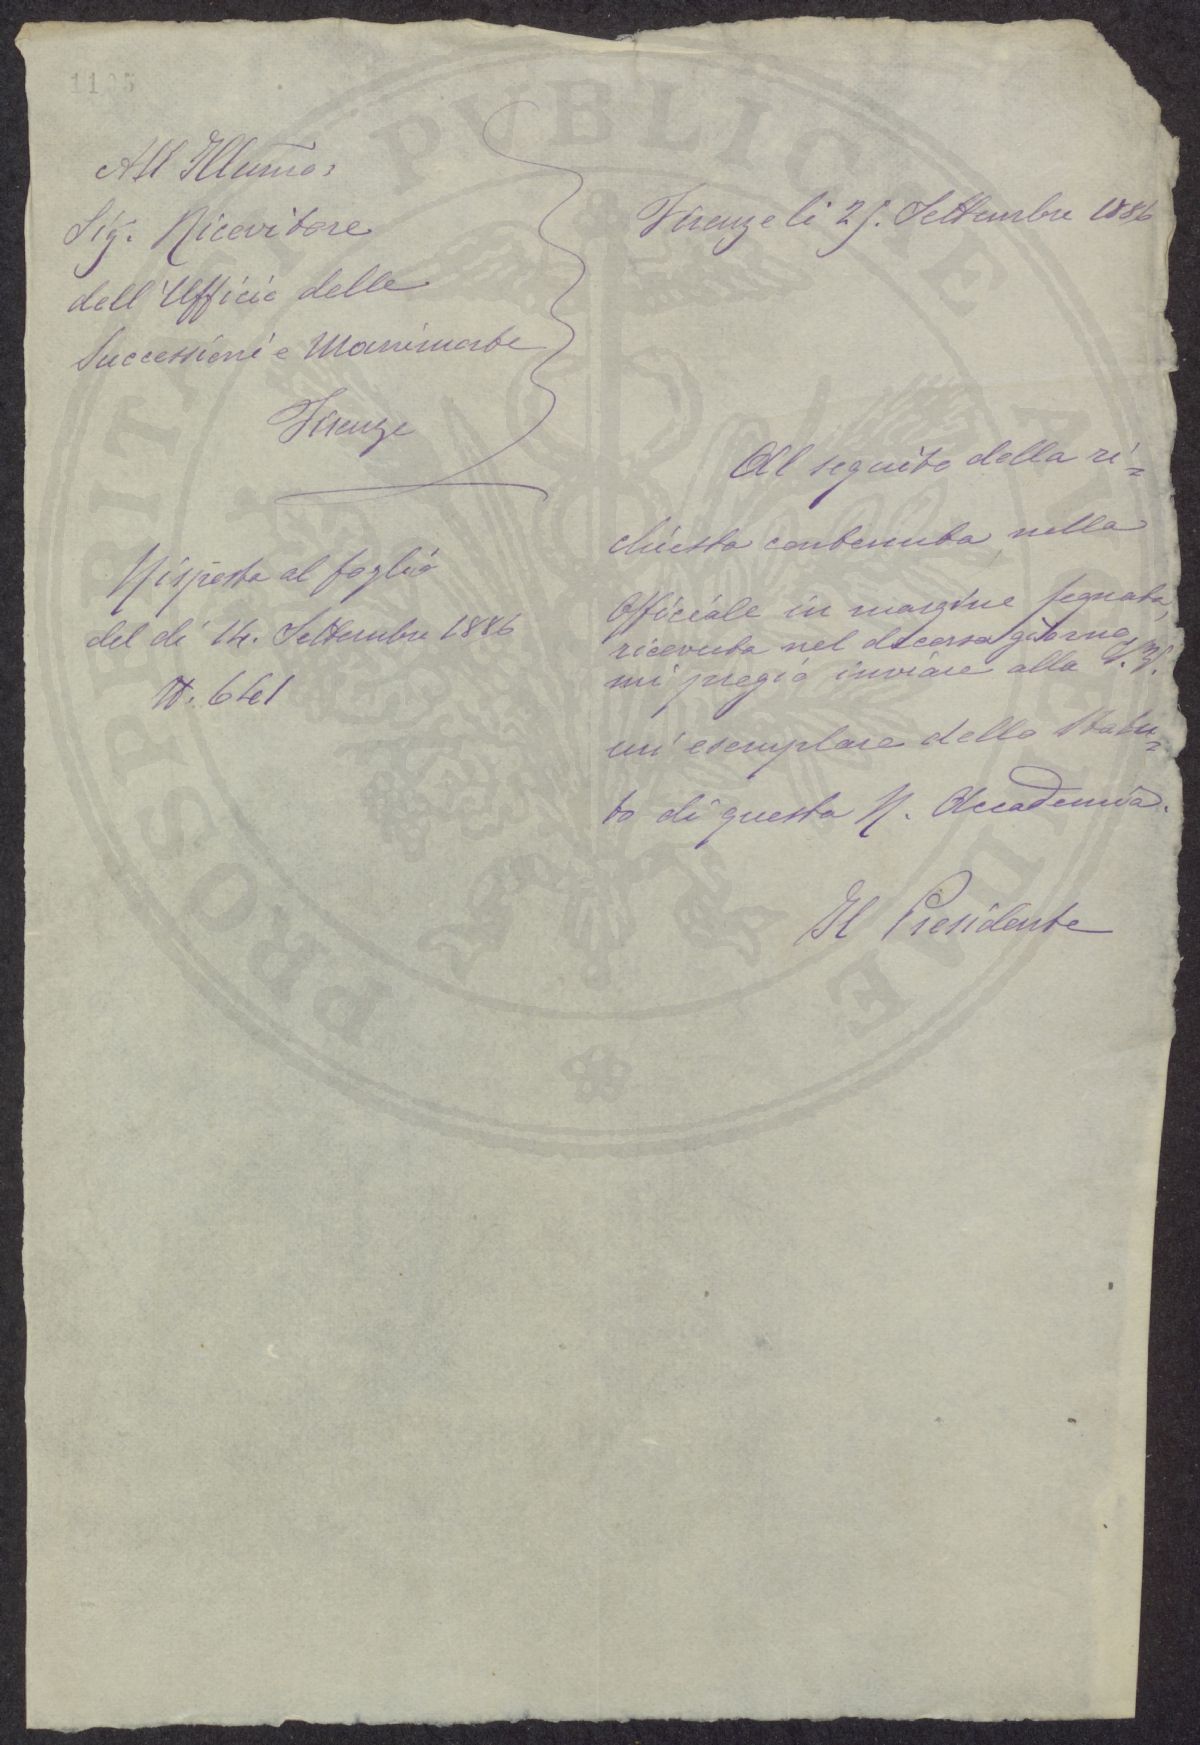 1105
All Illumo:
Sig. Ricevitore
dell'Ufficio delle
Successioni e Manimorte
Firenze
Risposta al foglio
del dì 14. Settembre 1886
N. 6461
Firenze li 25. Settembre 1886
Al seguito della ri=
chiesta contenuta nella
Officiale in margine segnata,
ricevuta nel decorso giorno
mi pregio inviare alla S. V.
un' esemplare dello Statu=
to di questa R. Accademia.
Il Presidente
PROSPERITATI PVBLICAE AVGENDAE